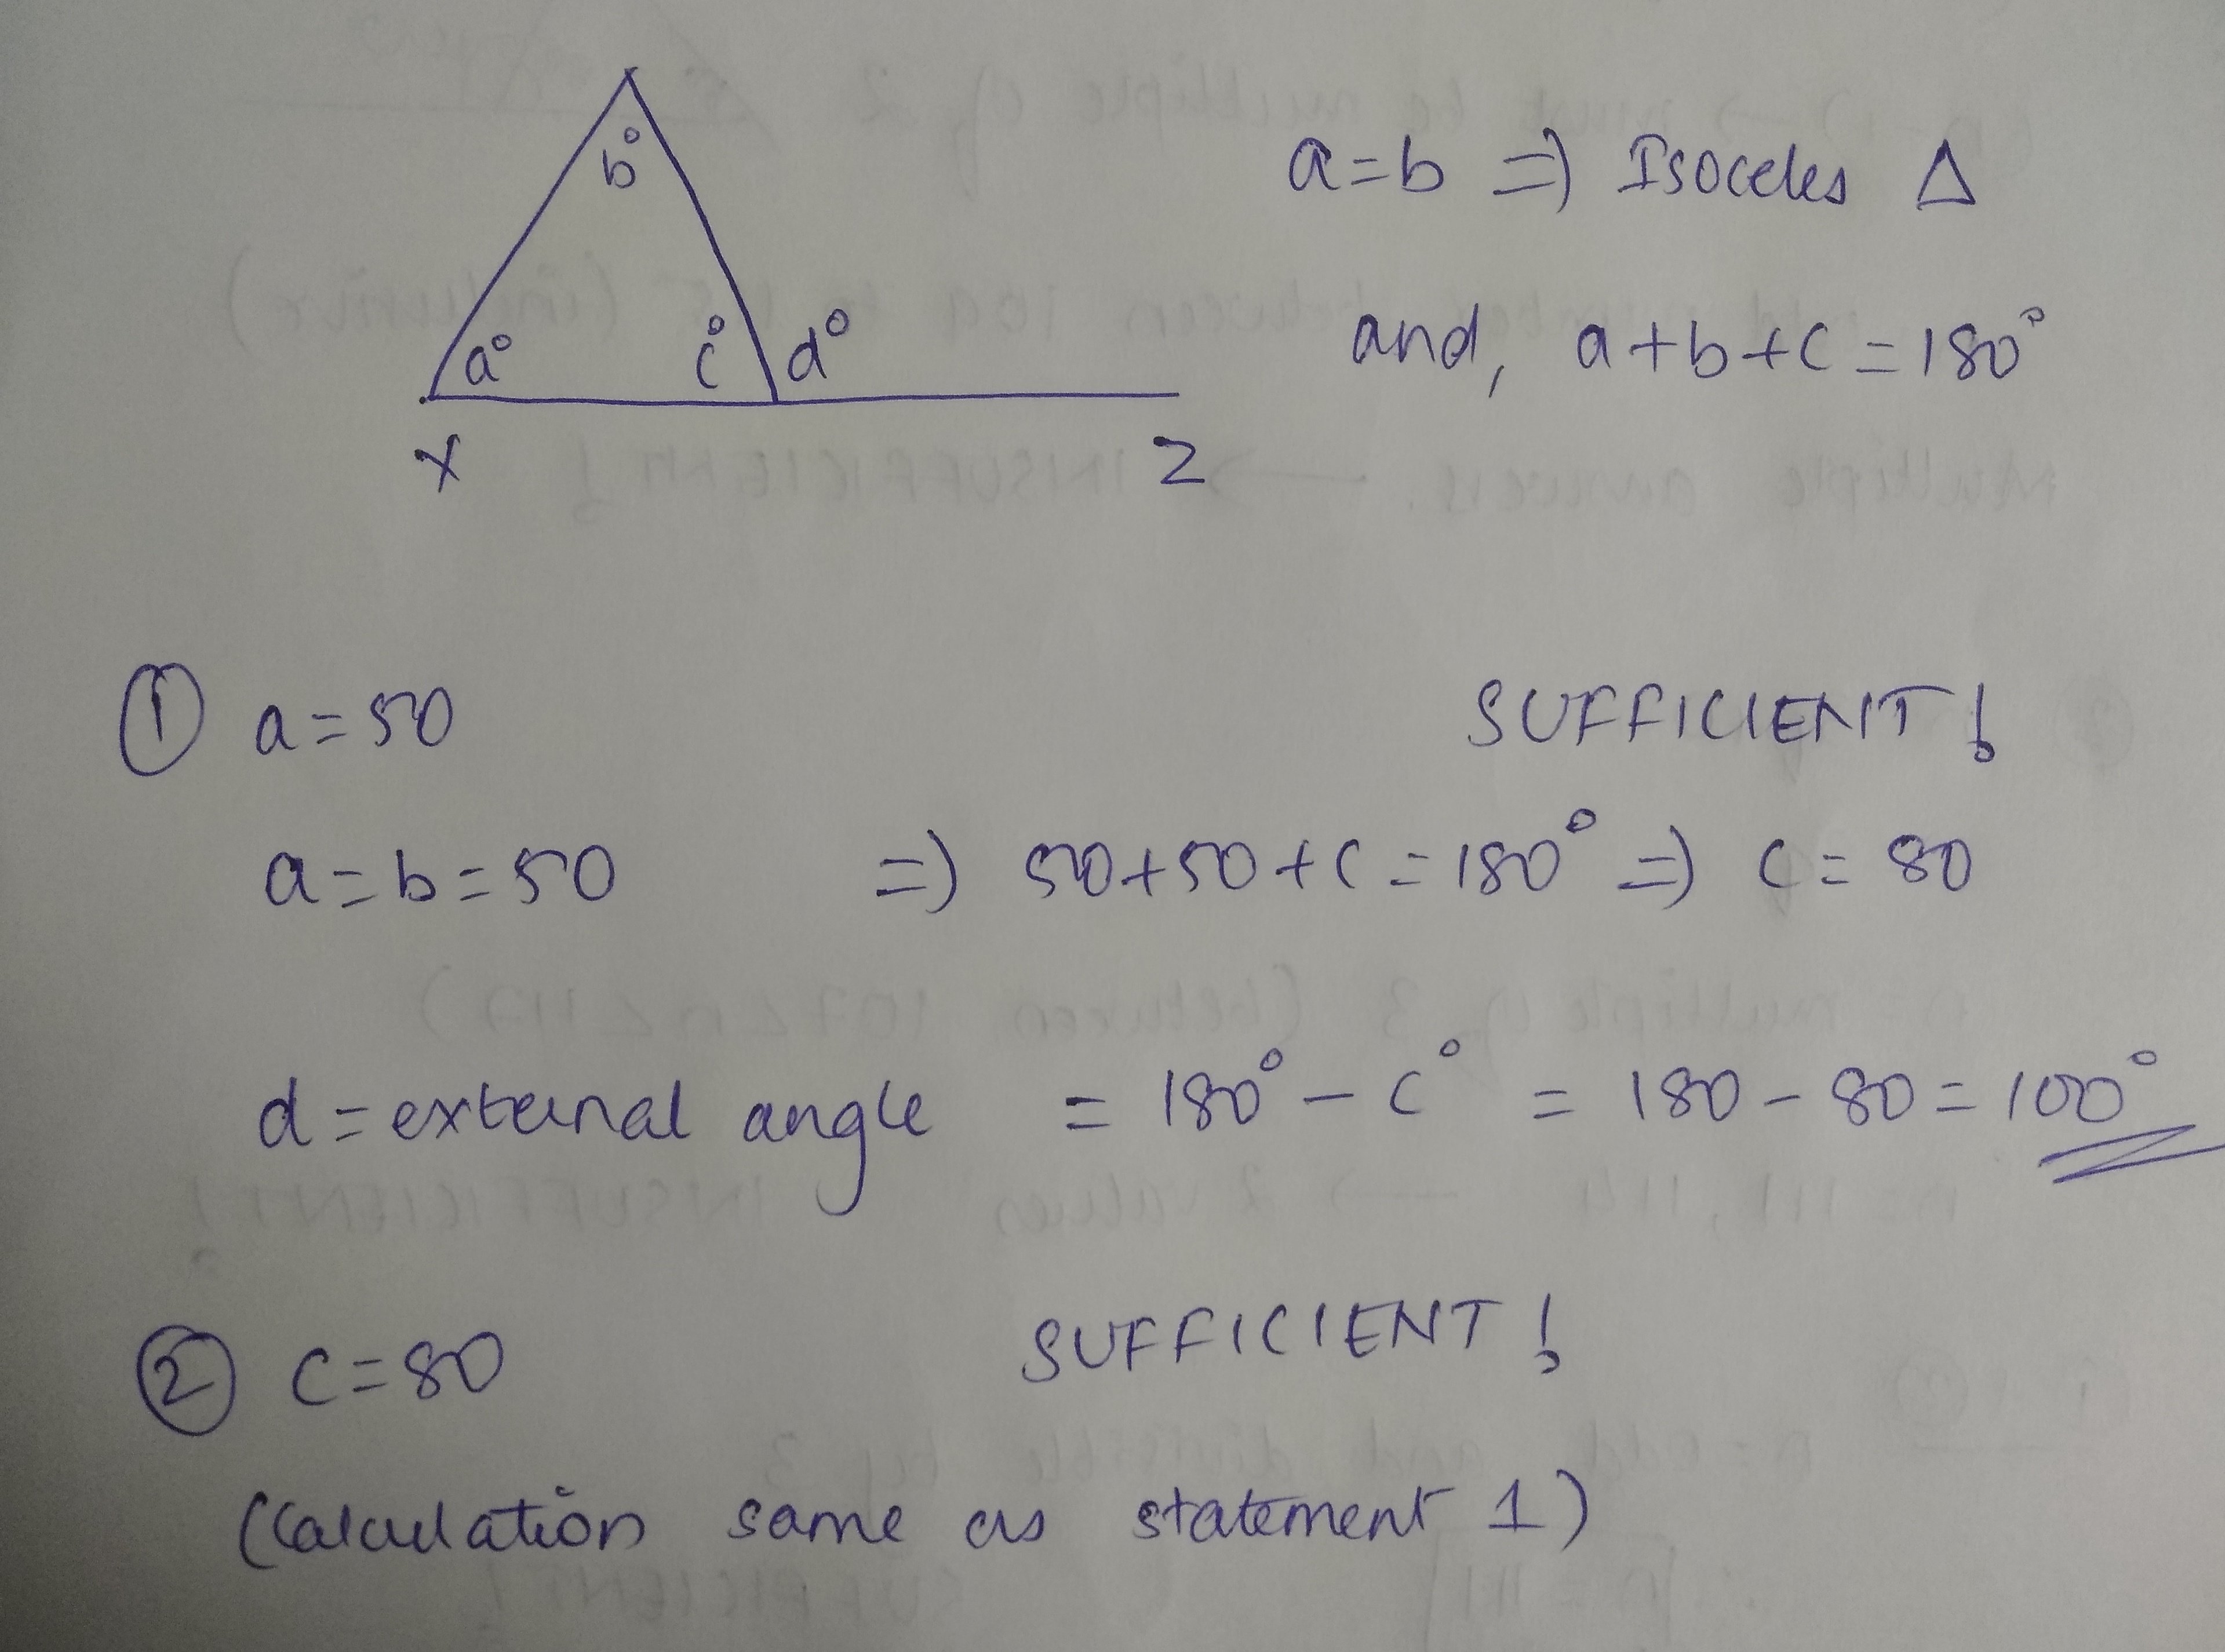 b°
a° c° d°
X Z
a=b => Isoceles Δ
and, a+b+c=180°
① a=50 SUFFICIENT!
a=b=50 => 50+50+c=180° => c=80
d=external angle = 180°-c° = 180-80=100°
② c=80 SUFFICIENT!
(Calculation same as statement 1)